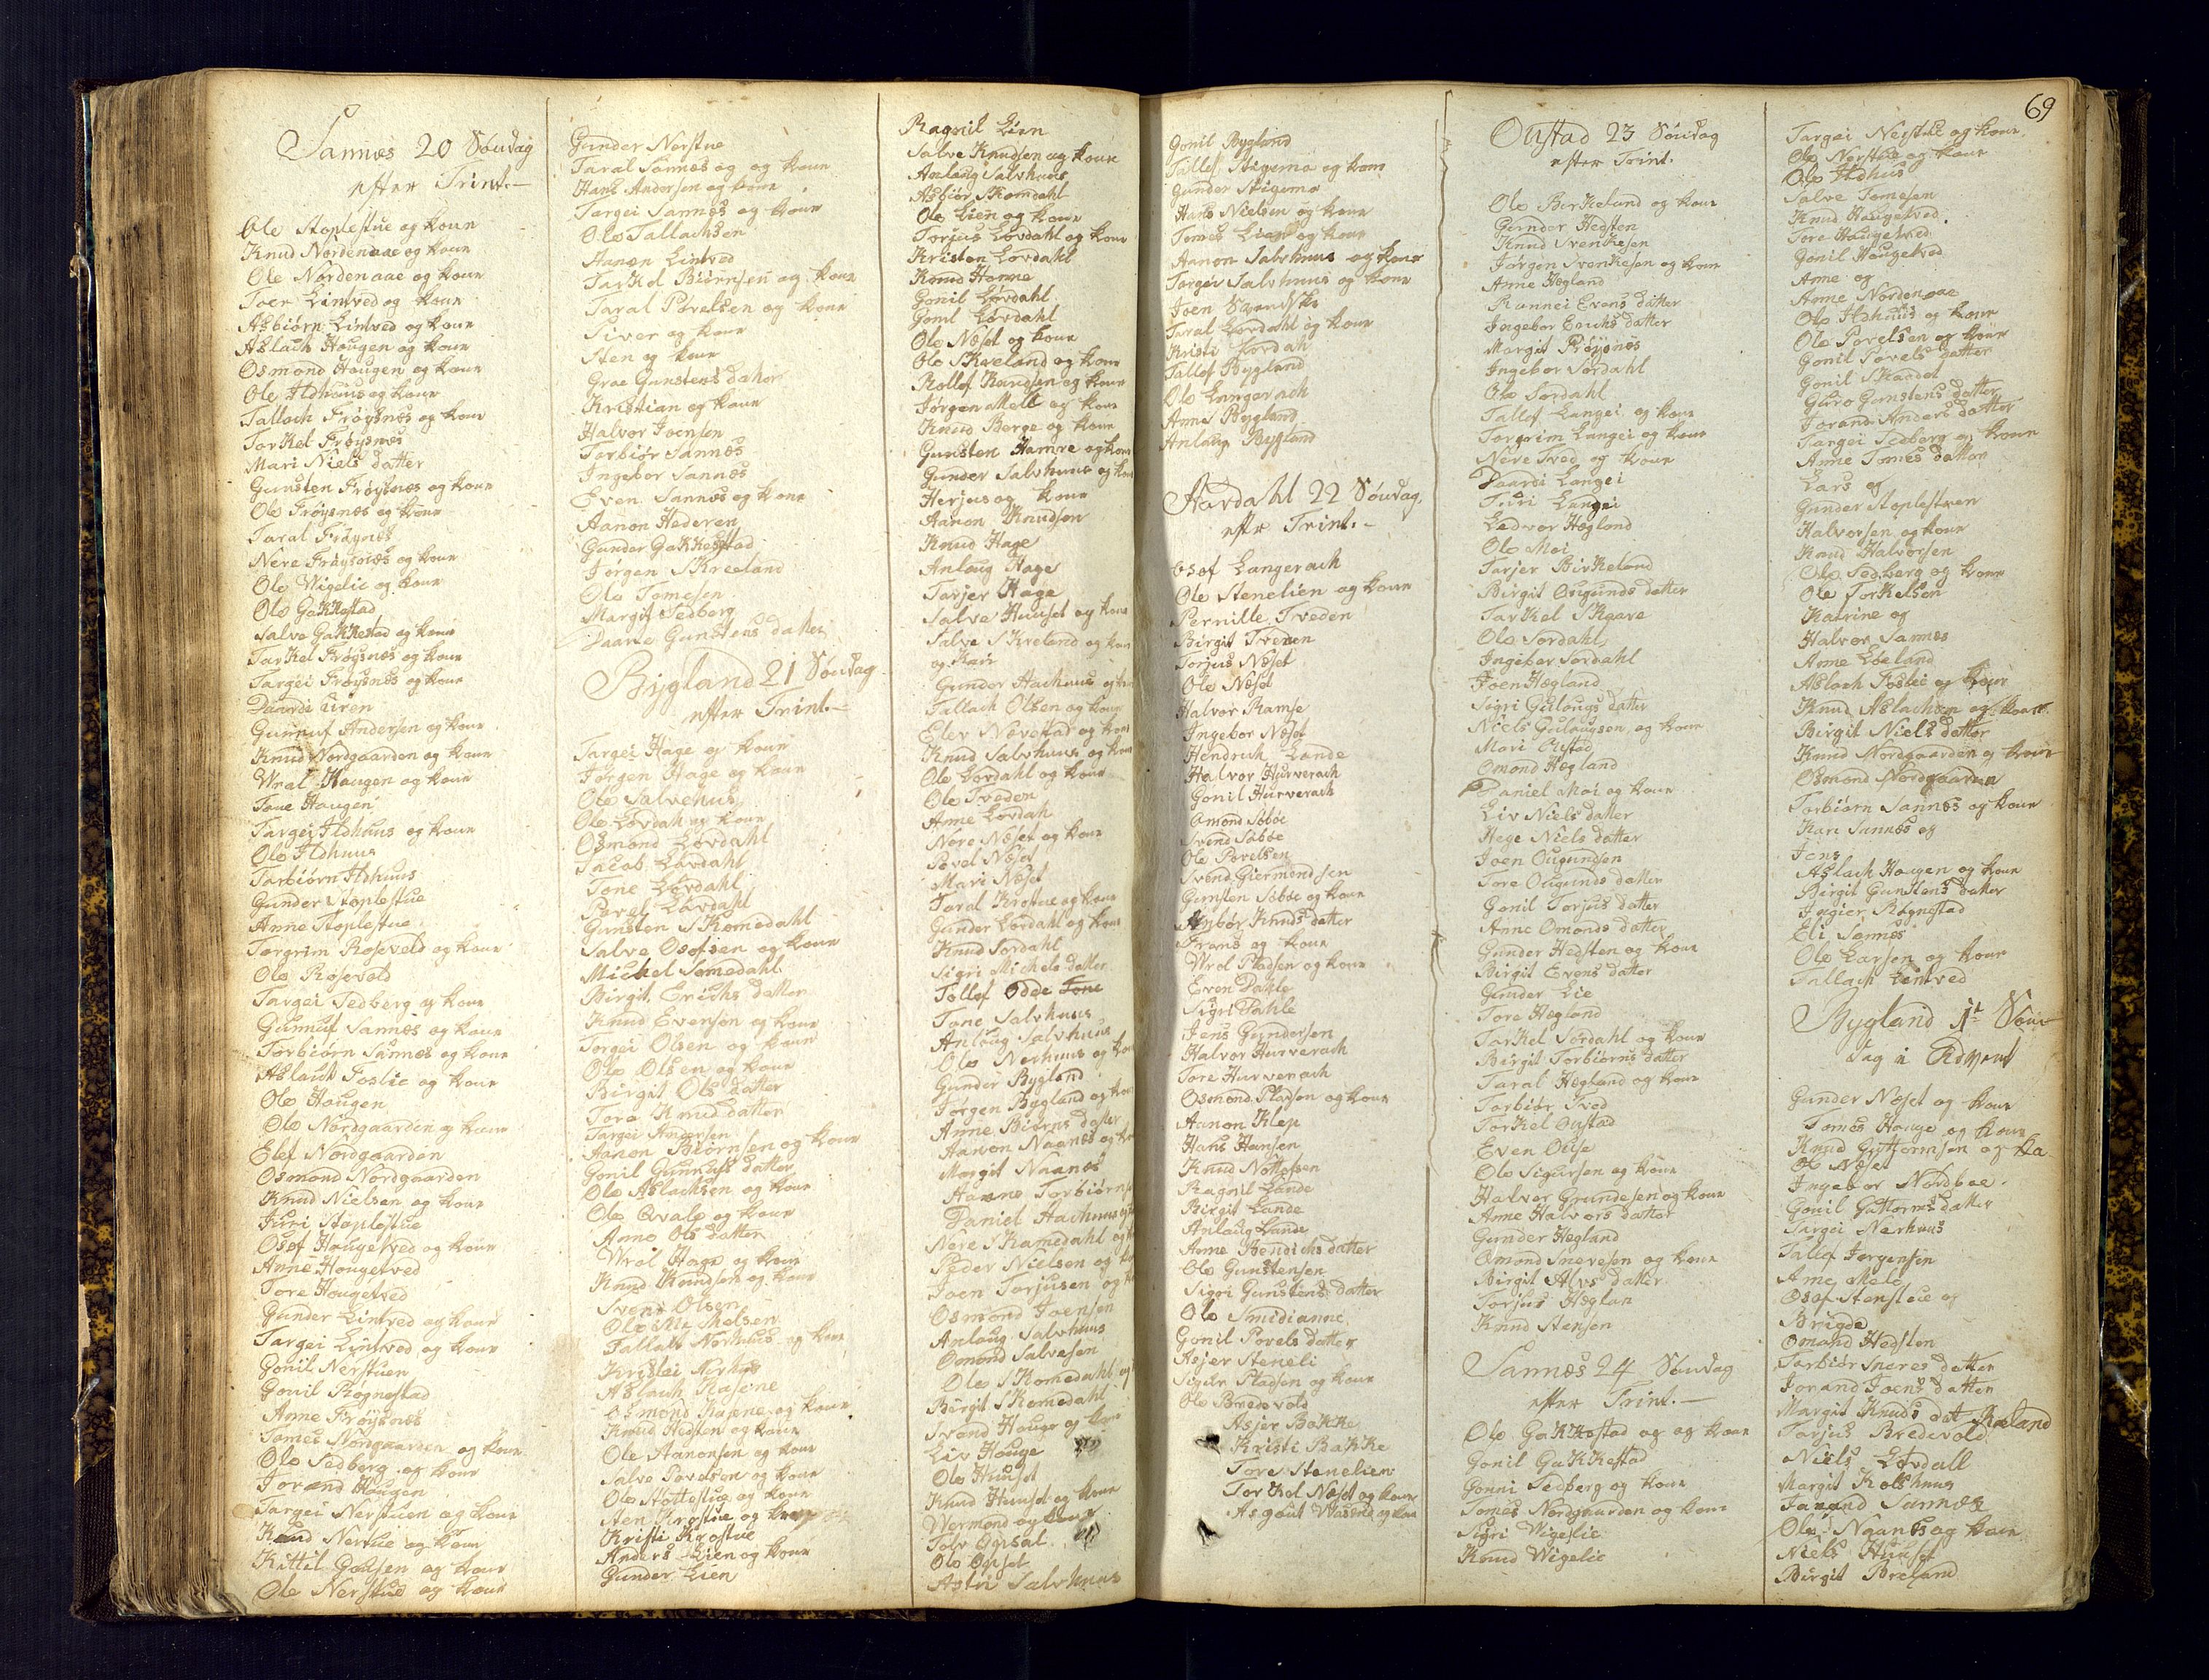 Sannes 20 Søndag
efter Trint.
Ole Stoplestue og kone
Knud Nordenaae og kone
Ole Nordenaae og kone
Joen Lintved og kone
Asbiørn Lintved og kone
Aslach Haugen og kone
Osmond Haugen og kone
Ole Ildhuus og kone
Tallach Frøysnes og kone
Torkel Frøysnes
Mari Niels datter
Gunsten Frøysnes og kone
Ole Frøysnes og kone
Taral Frøysnes
Nere Frøysnes og kone
Ole Wigelie og kone
Ole Gakkestad
Salve Gakkestad og kone
Tarkel Frøysnes og kone
Targei Frøysnes og kone
Daardi
Gunnuf Andersen og kone
Knud Nordgaarden og kone
Wral Haugen og kone
Tone Haugen
Targei Ildhuus og kone
Ole Ildhuus
Tarbiørn Ildhuus
Gunder Stoplestue
Anne Stoplestue
Torgrim Rosevold og kone
Ole Rosevold
Targei Sedberg og kone
Gunnuf Sannes og kone
Torbiørn Sannes og kone
Aslach Foslie og kone
Ole Haugen
Ole Nordgaarden og kone
Elef Nordgaarden
Osmond Nordgaarden
Knud Nielsen og kone
Juri Stoplestue
Osof Haugetved og kone
Anne Haugetved
Tore Haugetved
Gunder Lintved og kone
Targei Lintved og kone
Gonil Nerstuen
Gonil Rognestad
Anne Frøysnes
Tomes Nordgaarden og kone
Ole Sedberg og kone
Jorand Haugen
Targei Nerstuen og kone
Knud Nerstue og kone
Kittil og kone
Ole Nerstue og kone
Gunder Nerstue
Taral Sannes og og kone
Hans Andersen og kone
Targei Sannes og kone
Ole Tallachsen
Aanon Lintved
Tarkel Biørnsen og kone
Taral Povelsen og kone
Siver og kone
Sten og kone
Groe Gunstens datter
Kristian og kone
Halvor Joensen
Torbiør Sannes
Ingebor Sannes
Even Sannes og kone
Aanon Hederen
Gunder Gakkestad
Jørgen Skreeland
Ole Tomesen
Margit Sedberg
Gunstens datter
Bygland 21 Søndag
efter Trint.
Targei Hage og kone
Jørgen Hage og kone
Ole Salvehus
Ole Lovdahl og kone
Osmond Løvdahl
Jacob Løvdahl
Tone Løvdahl
Povel Løvdahl
Gunsten Skomedahl
Salve Osofsen og kone
Michel Somedahl
Birgit Erichs datter
Knud Evensen og kone
Torgei Olsen og kone
Ole Olsen og kone
Birgit Ols datter
Tore Knud datter
Targei Andersen
Aanon Biørnsen og kone
Gonil Gunnufs datter
Ole Aslachsen og kone
Ole Qvale og kone
Anne Ols datter
Wral Hage og kone
Knud Knudsen og kone
Svend Olsen
Ole
Tallak Nerhuus og kone
Kristei Nerhus
Aslach
Osmond og kone
Knud Hedsten og kone
Ole Aanonsen og kone
Salve Povelsen og kone
Ole Støttestue og kone
Sten Krostue og kone
Kristi Krostue
Anders Lien og kone
Gunder Lien
Ragnil Lien
Salve Knudsen og kone
Anlaug Salvhuus
Asbiør Skomdahl
Ole Lien og kone
Torjus Løvdahl og kone
Kristen Lovdahl
Knud Hamre
Gonil Løvdahl
Gonil Løvdahl
Ole Neset og kone
Ole Skreland og kone
Rollef Knudsen og kone
Jørgen Melle og kone
Knud Berge og kone
Gunsten Hamre og kone
Gunder Salvhuus og kone
Herjus og kone
Aanon Knudsen
Knud Hage
Anlaug Hage
Tarjer Hage
Salve Hunset og kone
Salve Skreland og kone
og Kari
Gunder Aachuus og
Tallach Olsen og kone
Elev og kone
Knud Salvhuus og kone
Ole Lovdahl og kone
Ole Tveden
Anne Lovdah
Nere Neset og kone
Povel Neset
Mari Neset
Taral Krostue og kone
Gunder Lovdahl og kone
Knud Sordahl
Sigri Michels datter
Tollef Odde
Tone Salvhuus
Anlaug Salvhuus
Ole Nerhuus og
Gunder Bygland
Jørgen Bygland og
Anne Biørns datter
Aanon Naanes og
Margit Naanes
Torbiørns
Daniel Aachuus
Nere Skomedahl og
Peder Nielsen og
Joen Torjusen og
Osmond Joensen
Anlaug Salvhuus
Omond Salvesen
Ole Skomedahl og
Birgit Skomedahl
Svend Hauge og kone
Liv Hauge
Ole Hunset
Knud Hunset og kone
Wermond og kone
Tolv Opsal
Ole Opset
Salvhuus
Gonil Bygland
Tallef Stigemo og kone
Gunder Stigemo
Hans Nielsen og kone
Tomes Lien og kone
Aanon Salvhuus og kone
Targei Salvhuus og kone
Joen
Taral Løvdahl og kone
Kristi Lordah
Tallef Bygland
Ole Langerach
Anne Bygland
Anlaug Bygland
Aardahl 22 Søndag
efter Trint.
Osof Langerach
Ole Stenelien og kone
Pernille Tveden
Birgit Tveden
Torjus Neset
Ole Neset
Halvor Ramse
Ingebor Neset
Hendrich Lande
Halvor Hurverach
Gonil Hurverach
Omond Søbøe
Svend Søbøe
Ole Povelsen
Svend Giermondsen
Gunsten Søbøe og kone
Knuds datter
Frans og kone
Wrol Pladsen og kone
Even Dahle
Sigri Dahle
Jens Gundersen
Halvor Hurverach
Tore Hurverach
Osmond Pladsen og kone
Aanon Klep
Hans Hansen
Knud Nottolsen
Ragnil Lande
Birgit Lande
Anlaug Lande
Anne Bendichs datter
Ole Gunstensen
Sigri Gunstens datter
Ole Smidianne
Gonil Povels datter
Asjer Steneli
Pladsen og kone
Ole Bredevold
Asjer Bakke
Kristi Bakke
Tore Stenelien
Torkel Neset og kone
Asgaut og kone
Oustad 23 Søndag
efter Trint.
Ole Birkeland og kone
Gunder Hedsten
Knud Svenkesen
Jørgen Svenkesen og kone
Anne Hegland
Ronnei Evens datter
Ingebor Erichs datter
Margit Frøysnes
Ingebor Sordahl
Ole Sordahl
Tallef Langei og kone
Torgrim Langei og kone
Nere Tved og kone
Daardi Langei
Turi Langei
Ledvor Hegland
Ole Moi
Tarjer Birkeland
Birgit Ougunds datter
Tarkel Skaare
Ole Sordahl
Ingebor Sordahl
Joen Hegland
Sigri Gulougs datter
Niels Gulougsen og kone
Mari Oustad
Omond Hegland
Daniel Moi og kone
Liv Niels datter
Hege Niels datter
Joen Ougundsen
Tore Ougunds datter
Gonil Torjus datter
Anne Omonds datter
Gunder Hedsten og kone
Birgit Evens datter
Gunder Lie
Tore Hegland
Torkel Sordahl og kone
Birgit Torbiørns datter
Taral Hegland og kone
Torbiør Tved
Torkel Oustad
Even Ouse
Ole Sigursen og kone
Halvor Grundesen og kone
Anne Halvors datter
Gunder Hegland
Omond Snevesen og kone
Birgit Alvs datter
Torjus Heglan
Knud Stensen
Sannes 24 Søndag
efter Trint.
Ole Gakkestad og og kone
Gonil Gakkestad
Gonni Sedberg og kone
Tomes Nordgaarden og kone
Sigri Wigelie
Knud Wigelie
69
Targei Nerstue og kone
Ole Nerstue og kone
Ole Ildhus
Salve Tomesen
Knud Haugetved
Tore Haugetved
Gonil Haugetved
Anne og
Anne Nordenaae
Ole Ildhuus og kone
Ole Povelsen og kone
Gonil Povels datter
Gonil Skardet
Guro Gunstens datter
Jorand Anders datter
Targei Sedberg og kone
Anne Tomes datter
Lars og
Gunder Stoplestuen
Halvorsen og kone
Knud Halvorsen
Ole Sedberg og kone
Ole Torkelsen
Katrine og
Halvor Sannes
Anne Løeland
Aslach Foslie og kone
Knud Aslachsen og kone
Birgit Niels datter
Knud Nordgaarden og kone
Osmond Nordgaarden
Torbiørn Sannes og kone
Kari Sannes og
Jens
Aslach Haugen og kone
Birgit Gunstens datter
Rognestad
Eli Sannes
Ole Larsen og kone
Tallach Lintved
Bygland 1t Søn
dag i Advent
Gunder Neset og kone
Tomes Hauge og kone
Knud Guttormsen og ko
Ole Neset
Ingebor Nordboe
Gonil Guttorms datter
Targei Nerhuus
Tallef Jørgensen
Arne Mele
Osof Stenslie og
Brigde
Omand Hedsten
Torbiør Sneres datter
Jorand Joens datter
Margit Knuds dat Skreland
Torjus Bredevold
Niels Løvdall
Margit Kolshuus
Jorand Sannes
Ole Naanes og kone
Niels Hunset
Birgit Breland